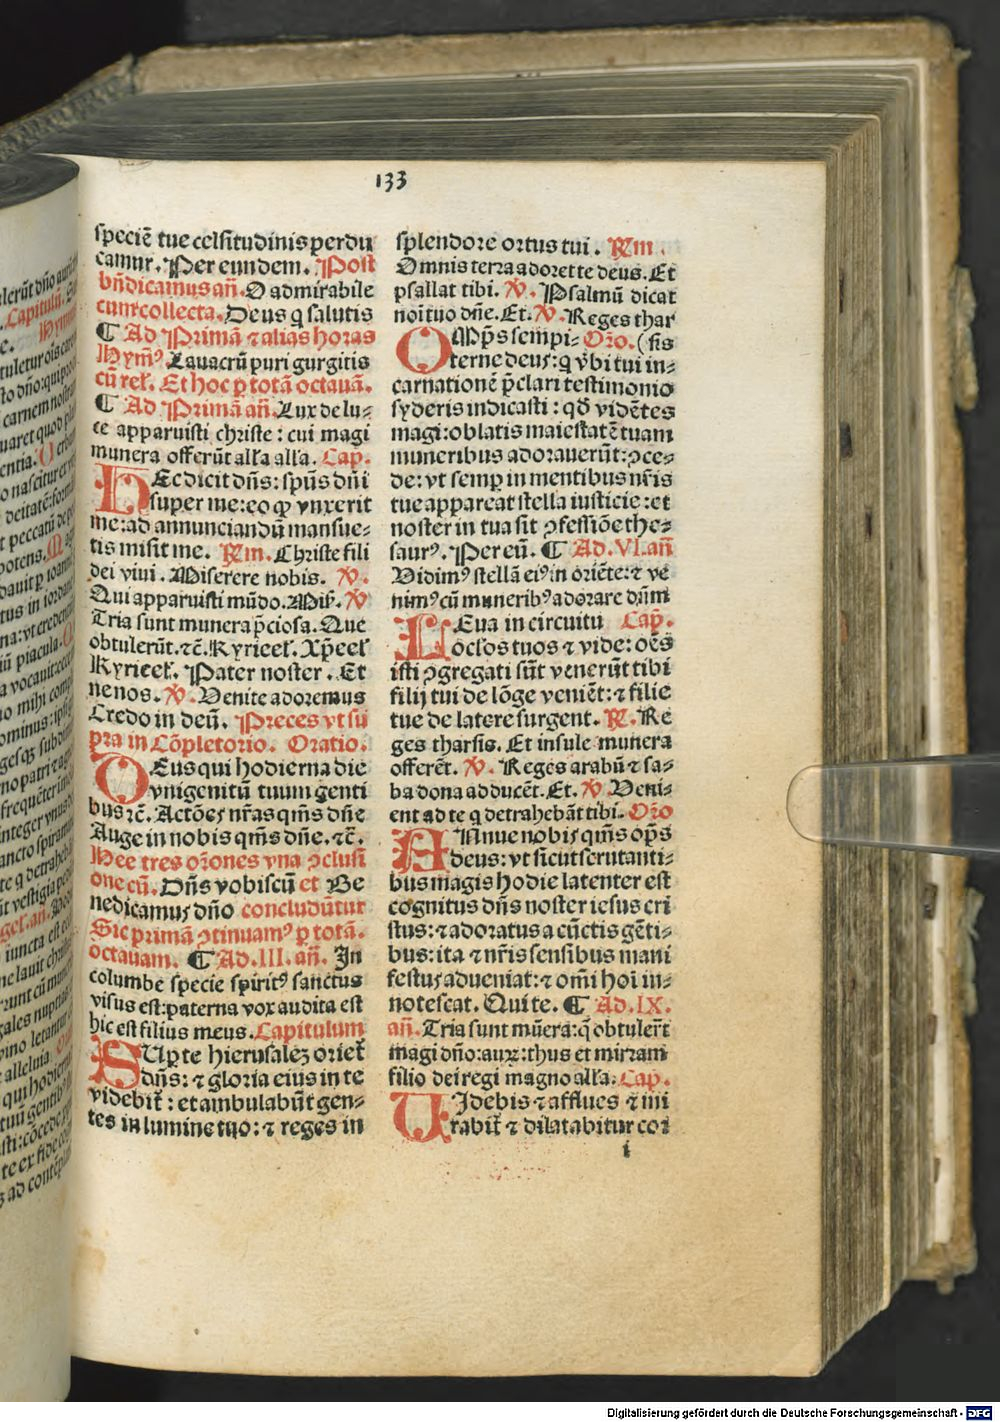 133
speciē tue celsitudinis perdu
camur. Per eundem. Post
bn̄dicamus an̄. O admirabile
cum collecta. Deus q salutis
¶ Ad Primā ⁊ alias horas
Hymꝰ Lauacrū puri gurgitis
cū rel'. Et hoc p totā octauā.
¶ Ad Primā an̄. Lux de lu⸗
ce apparuisti christe: cui magi
munera offerūt alľa alľa. Cap.
HEc dicit dn̄s: spūs dn̄i
super me: eo ꝙ vnxerit
me: ad annunciandū mansue⸗
tis misit me. Rm. Christe fili
dei viui. Miserere nobis. V.
Qui apparuisti mūdo. Mis'. V
Tria sunt munera p̄ciosa. Que
obtulerūt. ⁊c̄. Kyrieel'. Xp̄eel'
Kyrieel'. Pater noster. Et
ne nos. V. Venite adoremus
Credo in deū. Preces vt su
pra in Cōpletorio. Oratio.
DEus qui hodierna die
vnigenitū tuum genti
bus ⁊c̄. Actōes nr̄as qm̄s dn̄e
Auge in nobis qm̄s dn̄e. ⁊c̄.
Hee tres orōnes vna ꝯclusi
one cū. Dn̄s vobiscū et Be
nedicamus dn̄o concludūtur
Sic primā ꝯtinuamꝰ p totā.
octauam. ¶ Ad. III. an̄. In
columbe specie spiritꝰ sanctus
visus est: paterna vox audita est
hic est filius meus. Capitulum
SUp te hierusalez oriet̄
dn̄s: ⁊ gloria eius in te
videbit̄: et ambulabūt gen⸗
tes in lumine tuo: ⁊ reges in
splendore ortus tui. Rm.
Omnis terra adoret te deus. Et
psallat tibi. V. Psalmū dicat
noī tuo dn̄e. Et. V. Reges thar
OMp̄s sempi⸗ Oro. (sis
terne deus: q v̄bi tui in⸗
carnationē p̄clari testimonio
syderis indicasti: qd̄ vidētes
magi: oblatis maiestatē tuam
muneribus adorauerūt: ꝯce⸗
de: vt semp in mentibus nr̄is
tue appareat stella iusticie: et
noster in tua sit ꝯfessiōe the⸗
saurꝰ. Per eū. ¶ Ad. VI. an̄
Vidimꝰ stellā eiꝰ in oriēte: ⁊ ve
nimꝰ cū muneribꝰ adorare dn̄m
LEua in circuitu Cap.
oc̄los tuos ⁊ vide: oēs
isti ꝯgregati sūt venerūt tibi
filij tui de lōge veniēt: ⁊ filie
tue de latere surgent. R. Re
ges tharsis. Et insule munera
offerēt. V. Reges arabū ⁊ sa⸗
ba dona adducēt. Et. V. Veni⸗
ent ad te q detrahebāt tibi. Oro
ANnue nobis qm̄s op̄s
deus: vt sicut scrutanti⸗
bus magis hodie latenter est
cognitus dn̄s noster iesus cri
stus: ⁊ adoratus a cūctis gēti⸗
bus: ita ⁊ nr̄is sensibus mani
festus adueniat: ⁊ om̄i hoī in⸗
notescat. Qui te. ¶ Ad. IX.
an̄. Tria sunt mūera: q obtuler̄t
magi dn̄o: auꝝ: thus et mirram
filio dei regi magno alľa. Cap.
UIdebis ⁊ afflues ⁊ mi
rabit̄ ⁊ dilatabitur cor
i
Digitalisierung gefördert durch die Deutsche Forschungsgemeinschaft - DFG